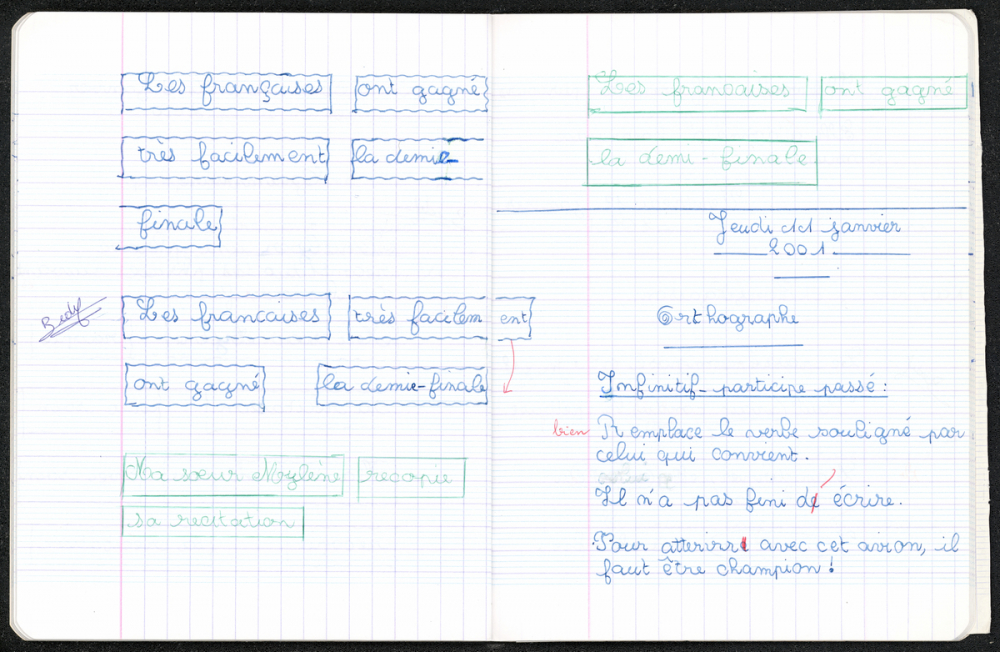 Les françaises ont gagné
très facilement la demie-
finale
Les francaises très facilement
ont gagné la demie-finale
Ma sœur Mylène recopie
sa recitation
Les francaises ont gagné
la demi-finale
Jeudi 11 janvier
2001
Orthographe
Infinitif- participe passé :
bien
Remplace le verbe souligné par
celui qui convient.
Il n'a pas fini d' écrire.
Pour atterirre avec cet avion, il
faut être champion !